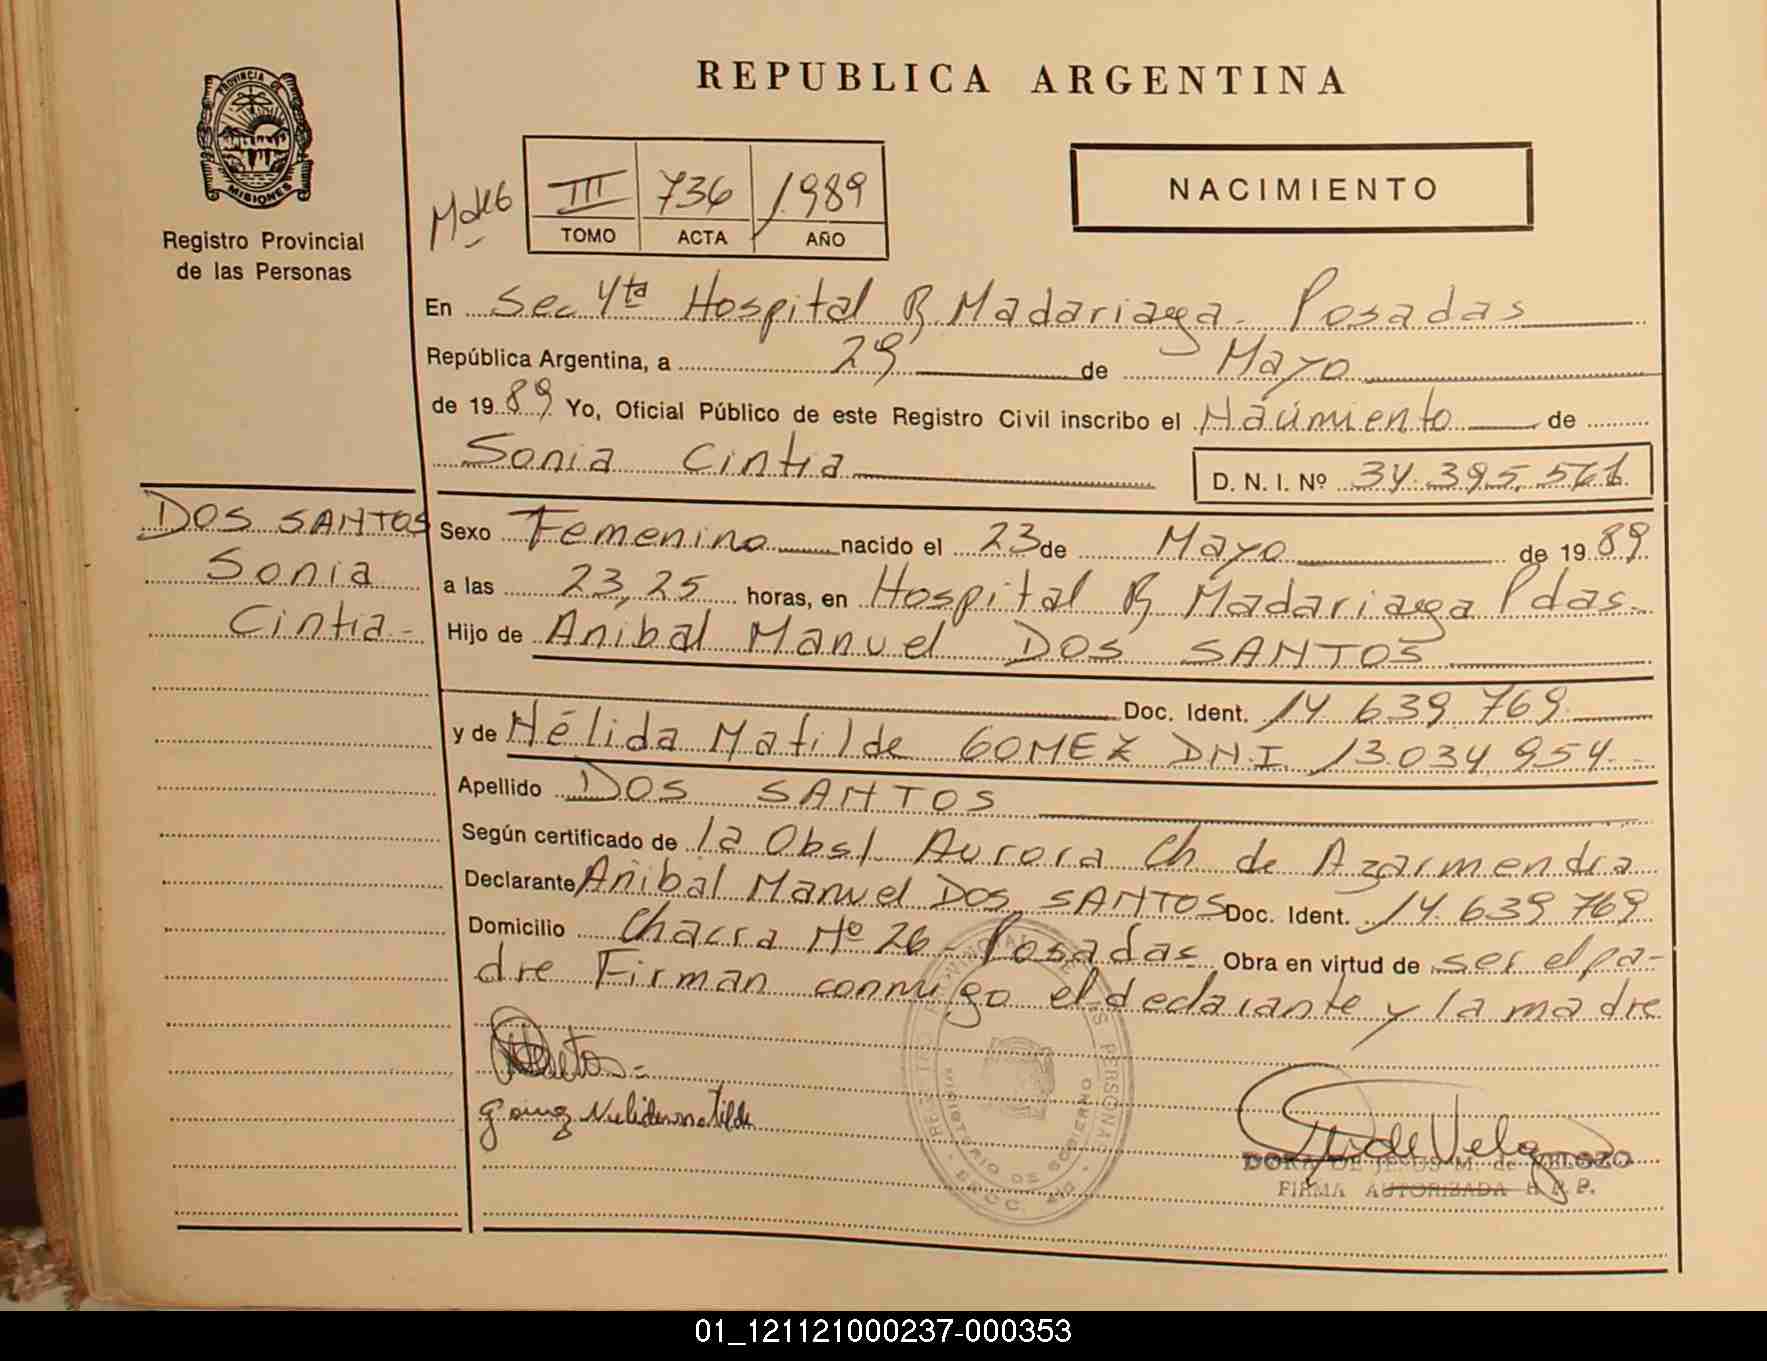 REPUBLICA ARGENTINA
PROVINCIA DE
MISIONES
Registro Provincial
de las Personas
NACIMIENTO
III 736 1989
TOMO ACTA AÑO
En Sec 4ta Hospital R Madariaga - Posadas
República Argentina, a 29 de Mayo
de 1989 Yo, Oficial Público de este Registro Civil inscribo el Nacimiento de
Sonia Cintia D. N. I. Nº 34.395.561
DOS SANTOS
Sonia
Cintia -
Sexo Femenino nacido el 23 de Mayo de 1989
a las 23,25 horas, en Hospital R Madariaga Pdas.
Hijo de Anibal Manuel DOS SANTOS
Doc. Ident. 14 639 769
y de Nélida Matilde GOMEZ DNI 13.034.954
Apellido DOS SANTOS
Según certificado de la Obst. Aurora Ch de Azarmendia
Declarante Anibal Manuel DOS SANTOS Doc. Ident. 14.639 769
Domicilio Chacra Nº 26 - Posadas Obra en virtud de ser el pa-
dre Firman conmigo el declarante y la madre
DORA DE JESUS M. de VELOZO
FIRMA AUTORIZADA R. P. P.
01_121121000237-000353